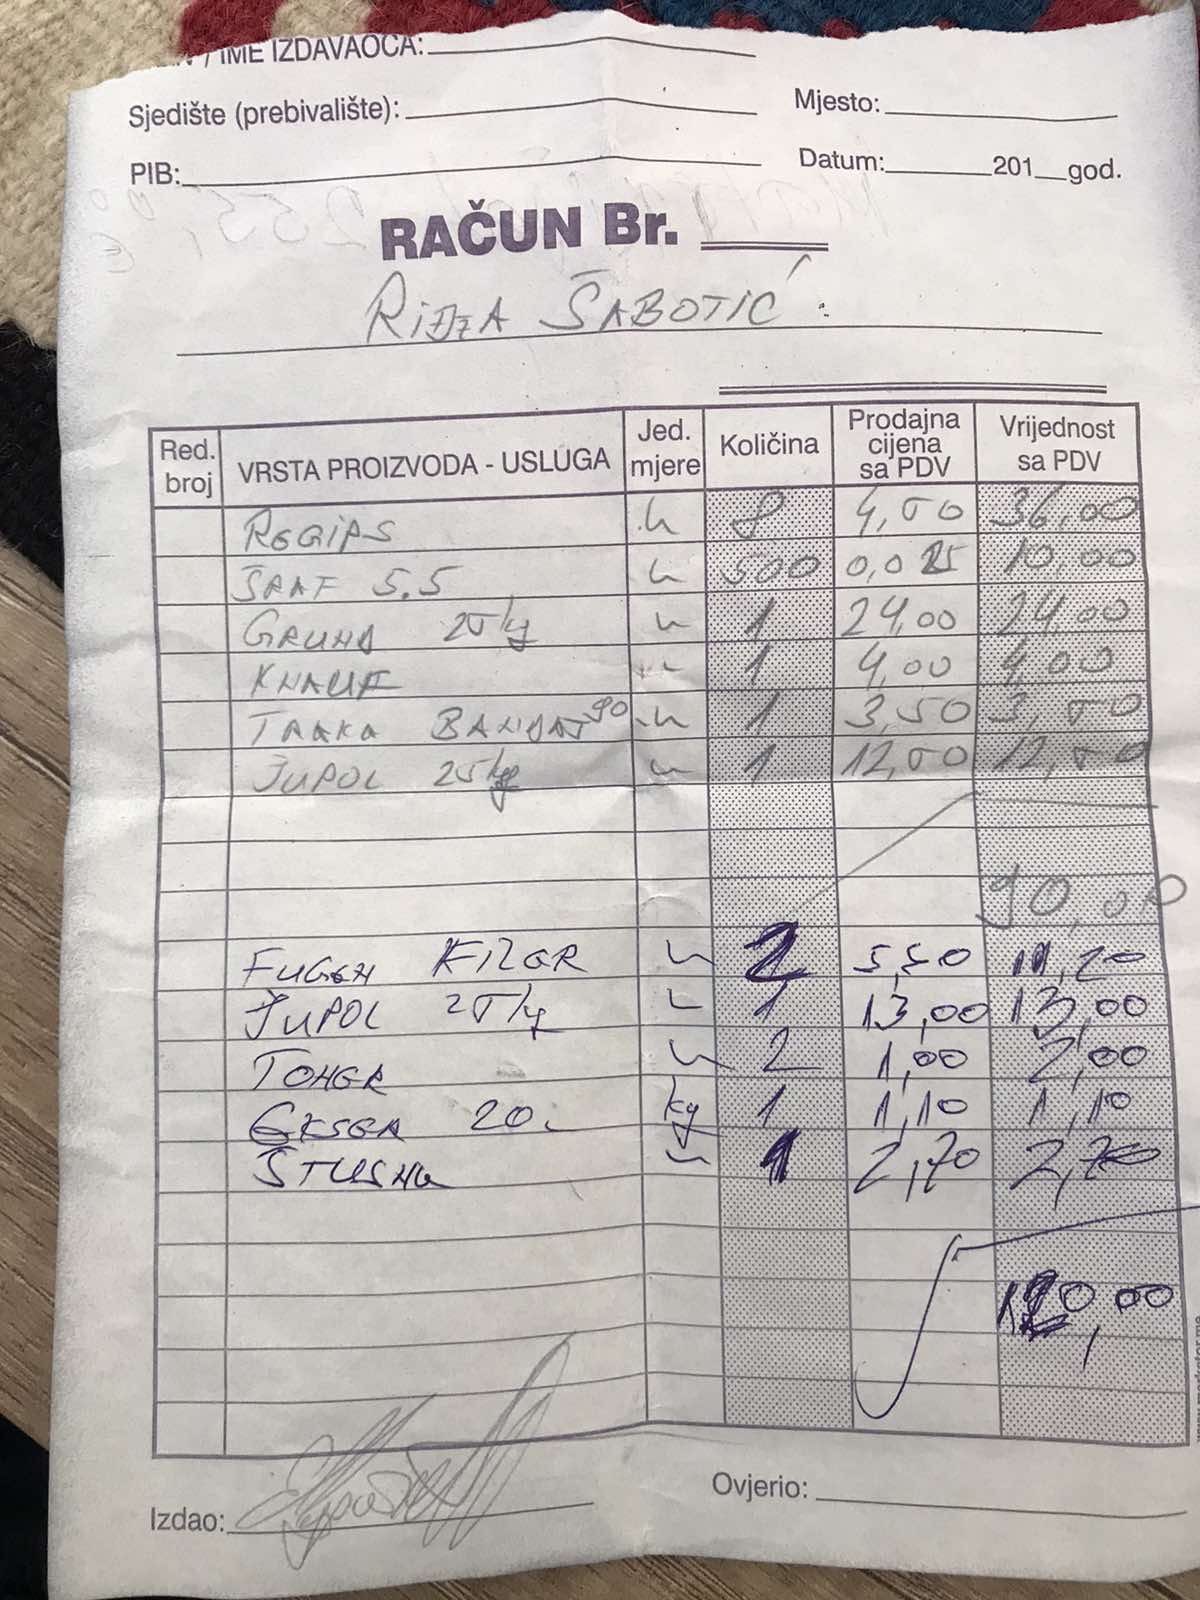 IME IZDAVAOCA:
Sjedište (prebivalište):
Mjesto:
PIB:
Datum: 201 god.
RAČUN Br.
RIĐZA ŠABOTIĆ
Red. broj VRSTA PROIZVODA - USLUGA Jed. mjere Količina Prodajna cijena sa PDV Vrijednost sa PDV
REGIPS 8 4,50 36,00
ŠRAF 5.5 500 10,00
24,00 24,00 25 kg 1
KNAUF 1 4,00 4,00
TRAKA BANDAŽ 90 1 3,50 3,50
JUPOL 25 kg 1 12,50 12,50
90,00
FUGEN FILER 2 11,20
JUPOL 25 kg 1 13,00 13,00
TONER 2 1,00 2,00
EKSER 20 kg 1 1,10 1,10
1 2,70 2,70
120,00
Izdao:
Ovjerio: